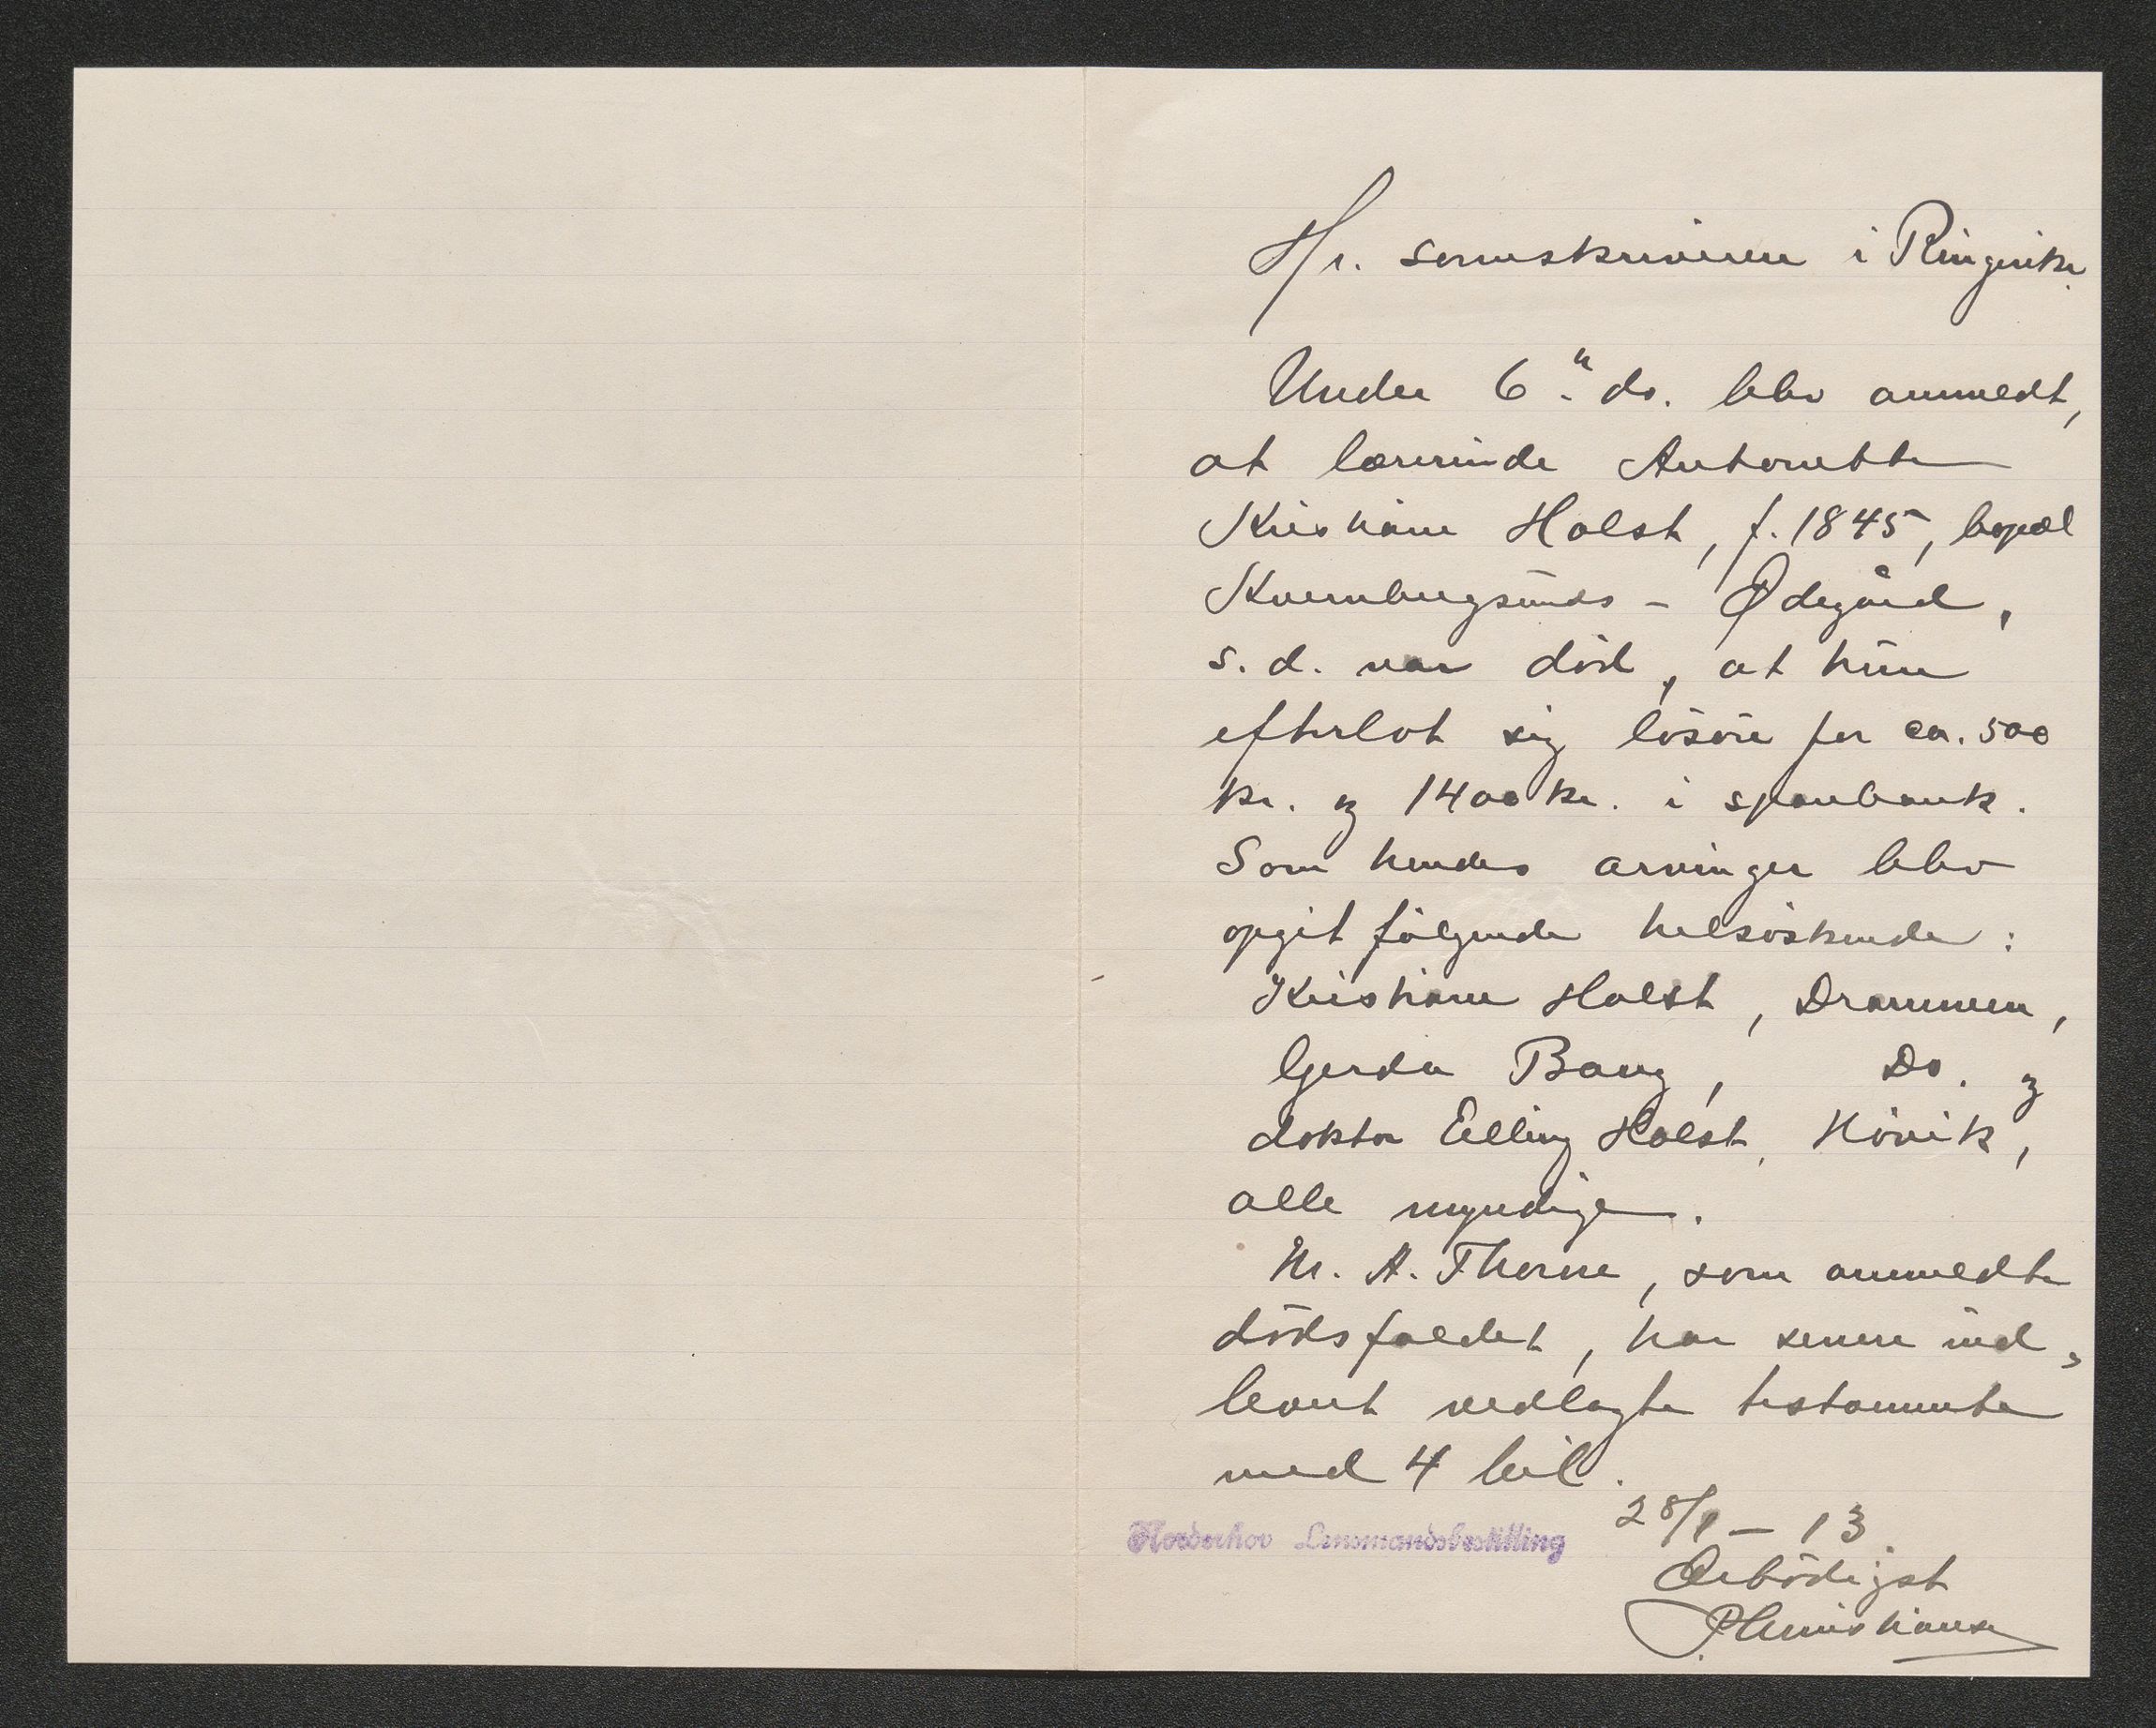 Hr. sorenskriveren i Ringerike.
Under 6te ds. blev anmeldt,
at lærerinde Antonette
Kristiane Holst, f. 1845, bopæl
Kvernbergsunds-Ødegård,
s. d. var död, at hun
efterlot sig lösöre for ca. 500
kr. og 1400 kr. i sparebank.
Som hendes arvinger blev
opgit fölgende helsöskende:
Kristiane Holst, Drammen,
Gerda Bang, Do. og
doktor Elling Holst, Hövik,
alle myndige.
Hr. A. Thorne, som anmeldte
dödsfaldet, har senere ind-
levert vedlagte testamente
med 4 bil.
28/1 – 13
Norderhov Lensmandsbestilling
Ærbödigst
P. Christiansen